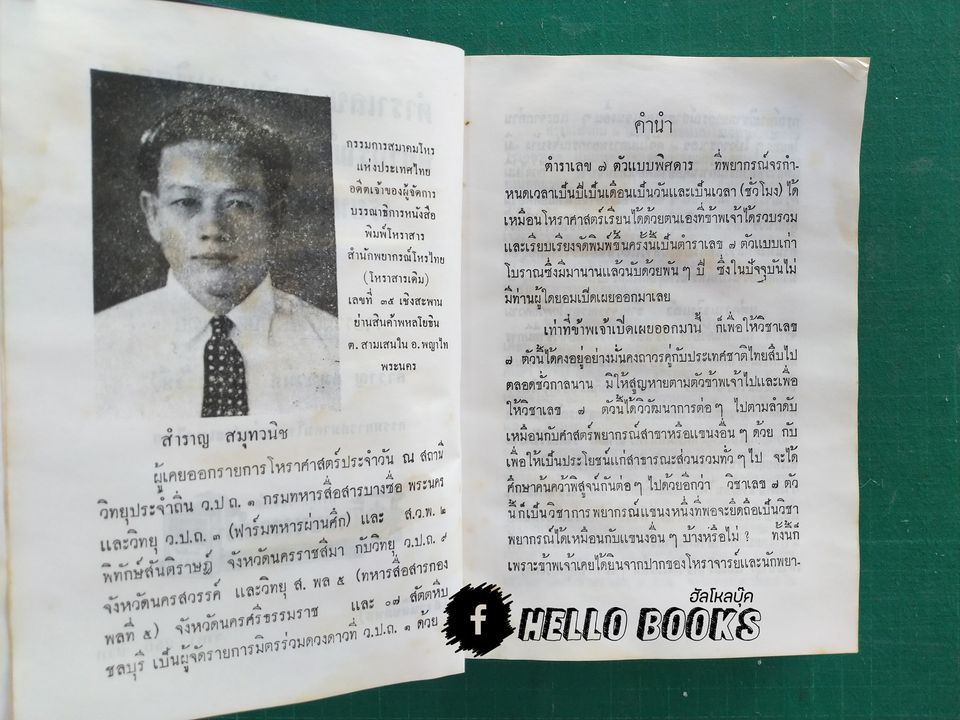 กรรมการสมาคมโหร
แห่งประเทศไทย
อดีตเจ้าของผู้จัดการ
บรรณาธิการหนังสือ
พิมพ์โหราสาร
สำนักพยากรณ์โหรไทย
(โหราสารเดิม)
เลขที่ ๓๕ เชิงสะพาน
ย่านสินค้าพหลโยธิน
ต. สามเสนใน อ. พญาไท
พระนคร
สำราญ สมุทวนิช
ผู้เคยออกรายการโหราศาสตร์ประจำวัน ณ สถานี
วิทยุประจำถิ่น ว.ป.ถ. ๑ กรมทหารสื่อสารบางซื่อ พระนคร
และวิทยุ ว.ป.ถ. ๓ (ฟาร์มทหารผ่านศึก) และ ส.ว.พ. ๒
พิทักษ์สันติราษฎ์ จังหวัดนครราชสีมา กับวิทยุ ว.ป.ถ. ๙
จังหวัดนครสวรรค์ และวิทยุ ส. พล ๕ (ทหารสื่อสารกอง
พลที่ ๕) จังหวัดนครศรีธรรมราช และ ๐๗ สัตตหีบ
ชลบุรี เป็นผู้จัดรายการมิตรร่วมดวงดาวที่ ว.ป.ถ. ๑ ด้วย
คำนำ
ตำราเลข ๗ ตัวแบบพิศดาร ที่พยากรณ์จรกำ-
หนดเวลาเป็นปีเป็นเดือนเป็นวันและเป็นเวลา (ชั่วโมง) ได้
เหมือนโหราศาสตร์เรียนได้ด้วยตนเองที่ข้าพเจ้าได้รวบรวม
และเรียบเรียงจัดพิมพ์ขึ้นครั้งนี้เป็นตำราเลข ๗ ตัวแบบเก่า
โบราณซึ่งมีมานานแล้วนับด้วยพัน ๆ ปี ซึ่งในปัจจุบันไม่
มีท่านผู้ใดยอมเปิดเผยออกมาเลย
เท่าที่ข้าพเจ้าเปิดเผยออกมานี้ ก็เพื่อให้วิชาเลข
๗ ตัวนี้ได้คงอยู่อย่างมั่นคงถาวรคู่กับประเทศชาติไทยสืบไป
ตลอดชั่วกาลนาน มิให้สูญหายตามตัวข้าพเจ้าไปและเพื่อ
ให้วิชาเลข ๗ ตัวนี้ได้วิวัฒนาการต่อ ๆ ไปตามลำดับ
เหมือนกับศาสตร์พยากรณ์สาขาหรือแขนงอื่น ๆ ด้วย กับ
เพื่อให้เป็นประโยชน์แก่สาธารณะส่วนรวมทั่ว ๆ ไป จะได้
ศึกษาค้นคว้าพิสูจน์กันต่อ ๆ ไปด้วยอีกว่า วิชาเลข ๗ ตัว
นี้ก็เป็นวิชาการพยากรณ์แขนงหนึ่งที่พอจะยึดถือเป็นวิชา
พยากรณ์ได้เหมือนกับแขนงอื่น ๆ บ้างหรือไม่ ? ทั้งนี้ก็
เพราะข้าพเจ้าเคยได้ยินจากปากของโหราจารย์และนักพยา-
ฮัลโหลบุ๊ค
f HELLO BOOKS